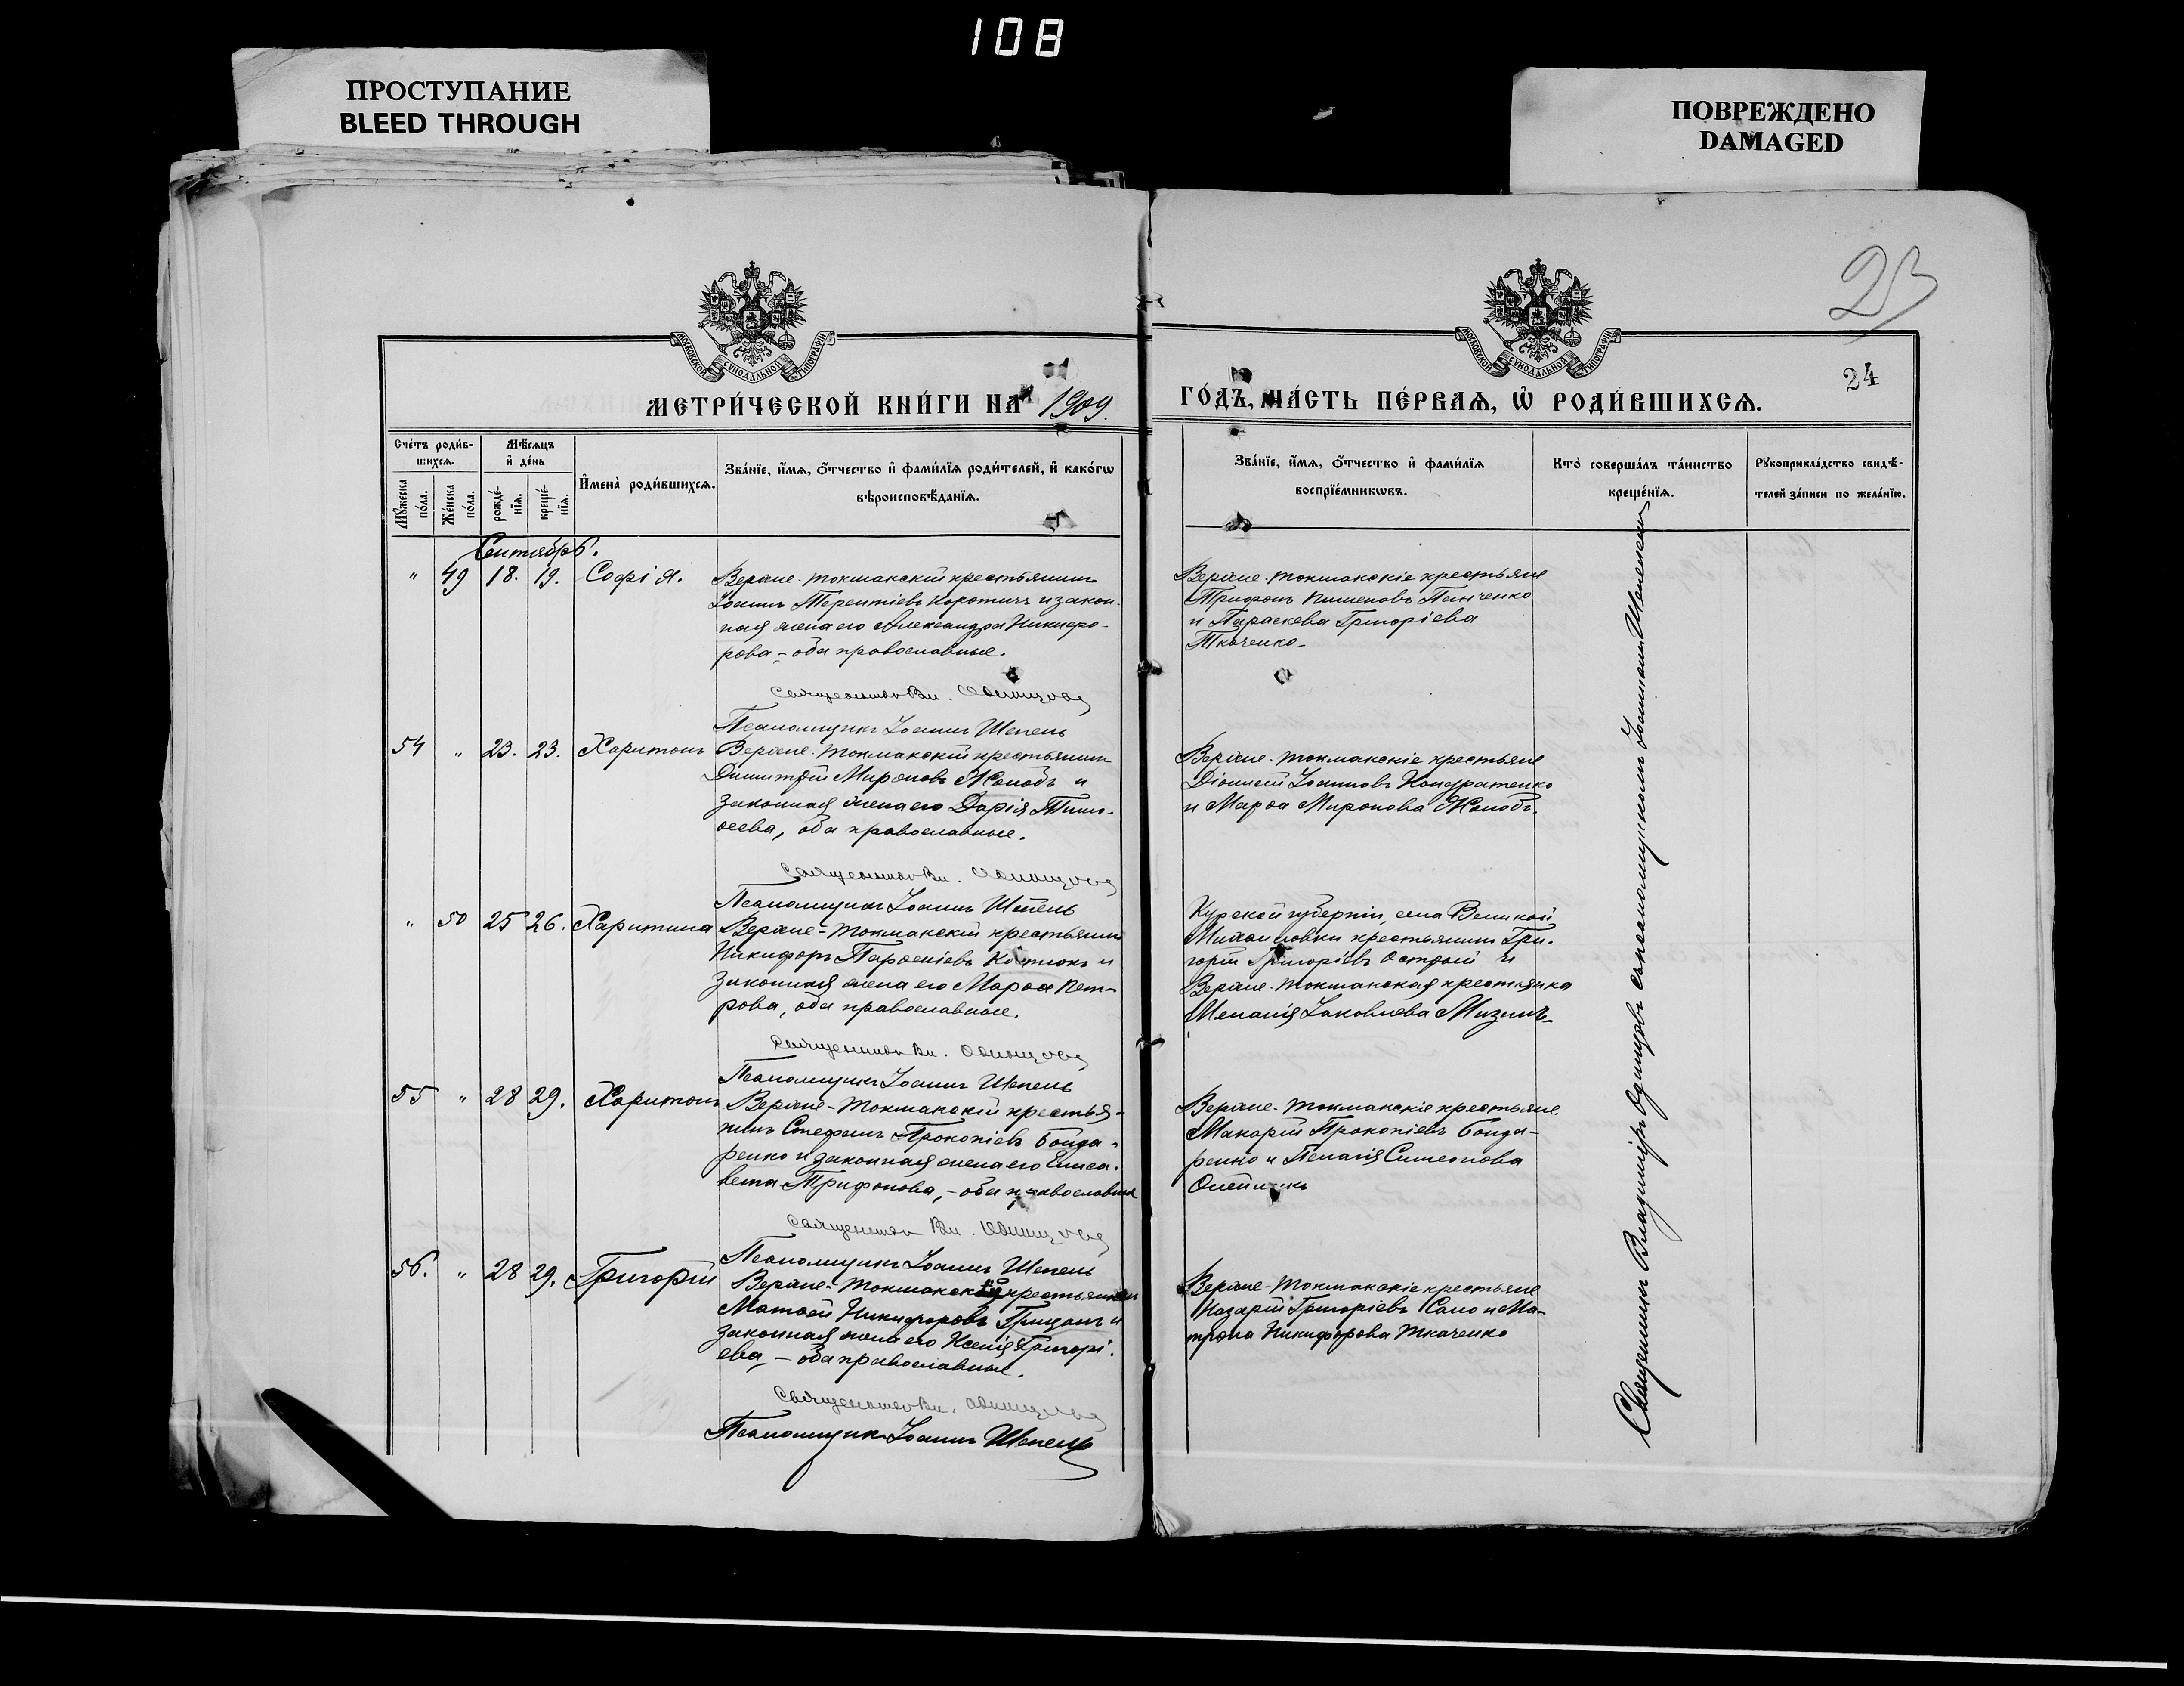 108
ПРОСТУПАНИЕ
BLEED THROUGH
ПОВРЕЖДЕНО
DAMAGED
23
24
МОСКОВСКОЙ СѴНОДАЛЬНОЙ ТИПОГРАФІИ
МОСКОВСКОЙ СѴНОДАЛЬНОЙ ТИПОГРАФІИ
МЕТРИ́ЧЕСКОЙ КНИ́ГИ НА 1909.
ГО́ДЪ, ЧА́СТЬ ПЕ́РВАЯ, Ѡ҆ РОДИ́ВШИХСЯ.
Сче́тъ роди́в-
шихся.
Мѣ́сяцъ
и҆ де́нь
Мꙋ́жеска
по́ла.
Же́нска
по́ла.
рожде́-
нїя.
креще́-
нїя.
И҆мена̀ роди́вшихся.
Зва́нїе, и҆́мя, ѻ҆́тчество и҆ фами́лїя роди́телей, и҆ како́гѡ
вѣроисповѣ́данїя.
Зва́нїе, и҆́мя, ѻ҆́тчество и҆ фами́лїя
воспрїе́мникѡвъ.
Кто̀ соверша́лъ та́инство
креще́нїя.
Рꙋкоприкла́дство свидѣ́-
телей за́писи по жела́нїю.
Сентябрь.
" 49 18. 19. Софія.
Верхне-токмакскій крестьянинъ
Іоаннъ Терентіевъ Коротичъ и закон-
ная жена его Александра Никифо-
рова, - оба православные.
Священникъ Вл. Одинцовъ
Псаломщикъ Іоаннъ Шепель
Верхне-токмакскіе крестьяне
Трифонъ Пименовъ Панченко
и Параскева Григоріева
Ткаченко.
54 " 23. 23. Харитонъ
Верхне-токмакскій крестьянинъ
Димитрій Мироновъ Жолобъ и
законная жена его Дарія Тимо-
ѳеева, оба православные.
Священникъ Вл. Одинцовъ
Псаломщикъ Іоаннъ Шепель
Верхне-токмакскіе крестьяне
Діонисій Іоанновъ Кондратенко
и Марѳа Миронова Жолобъ.
" 50 25 26. Харитина
Верхне-Токмакскій крестьянинъ
Никифоръ Парѳеніевъ Костюкъ и
законная жена его Марѳа Пет-
рова, оба православные.
Священникъ Вл. Одинцовъ
Псаломщикъ Іоаннъ Шепель
Курской губерніи, села Великой
Михайловки крестьянинъ Гри-
горій Григоріевъ Острый и
Верхне-токмакская крестьянка
Меланія Іаковлева Мизинъ
55 " 28 29. Харитонъ
Верхне-Токмакскій крестья-
нинъ Стефанъ Прокопіевъ Бонда-
ренко и законная жена его Елиса-
вета Трифонова, - оба православные
Священникъ Вл. Одинцовъ
Псаломщикъ Іоаннъ Шепель
Верхне-токмакскіе крестьяне
Макарій Прокопіевъ Бонда-
ренко и Пелагія Симеонова
Олейникъ
56. " 28 29. Григорій
Верхне-Токмакскій крестьянинъ
Матѳей Никифоровъ Грицанъ и
законная жена его Ксенія Григорі-
ева, - оба православные.
Священникъ Вл. Одинцовъ
Псаломщикъ Іоаннъ Шепель
Верхне-Токмакскіе крестьяне
Назарій Григоріевъ Сало и Ма-
трона Никифорова Ткаченко
Священникъ Владиміръ Одинцовъ съ псаломщикомъ Іоанномъ Шепелемъ